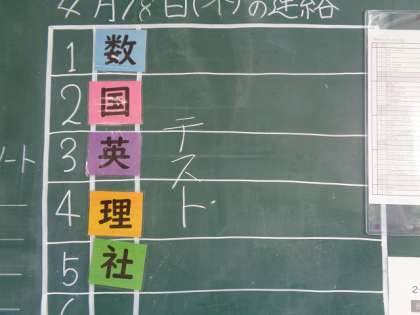 4月18日(木)の連絡
1 数
2 国
3 英
4 理
5 社
テスト
ート